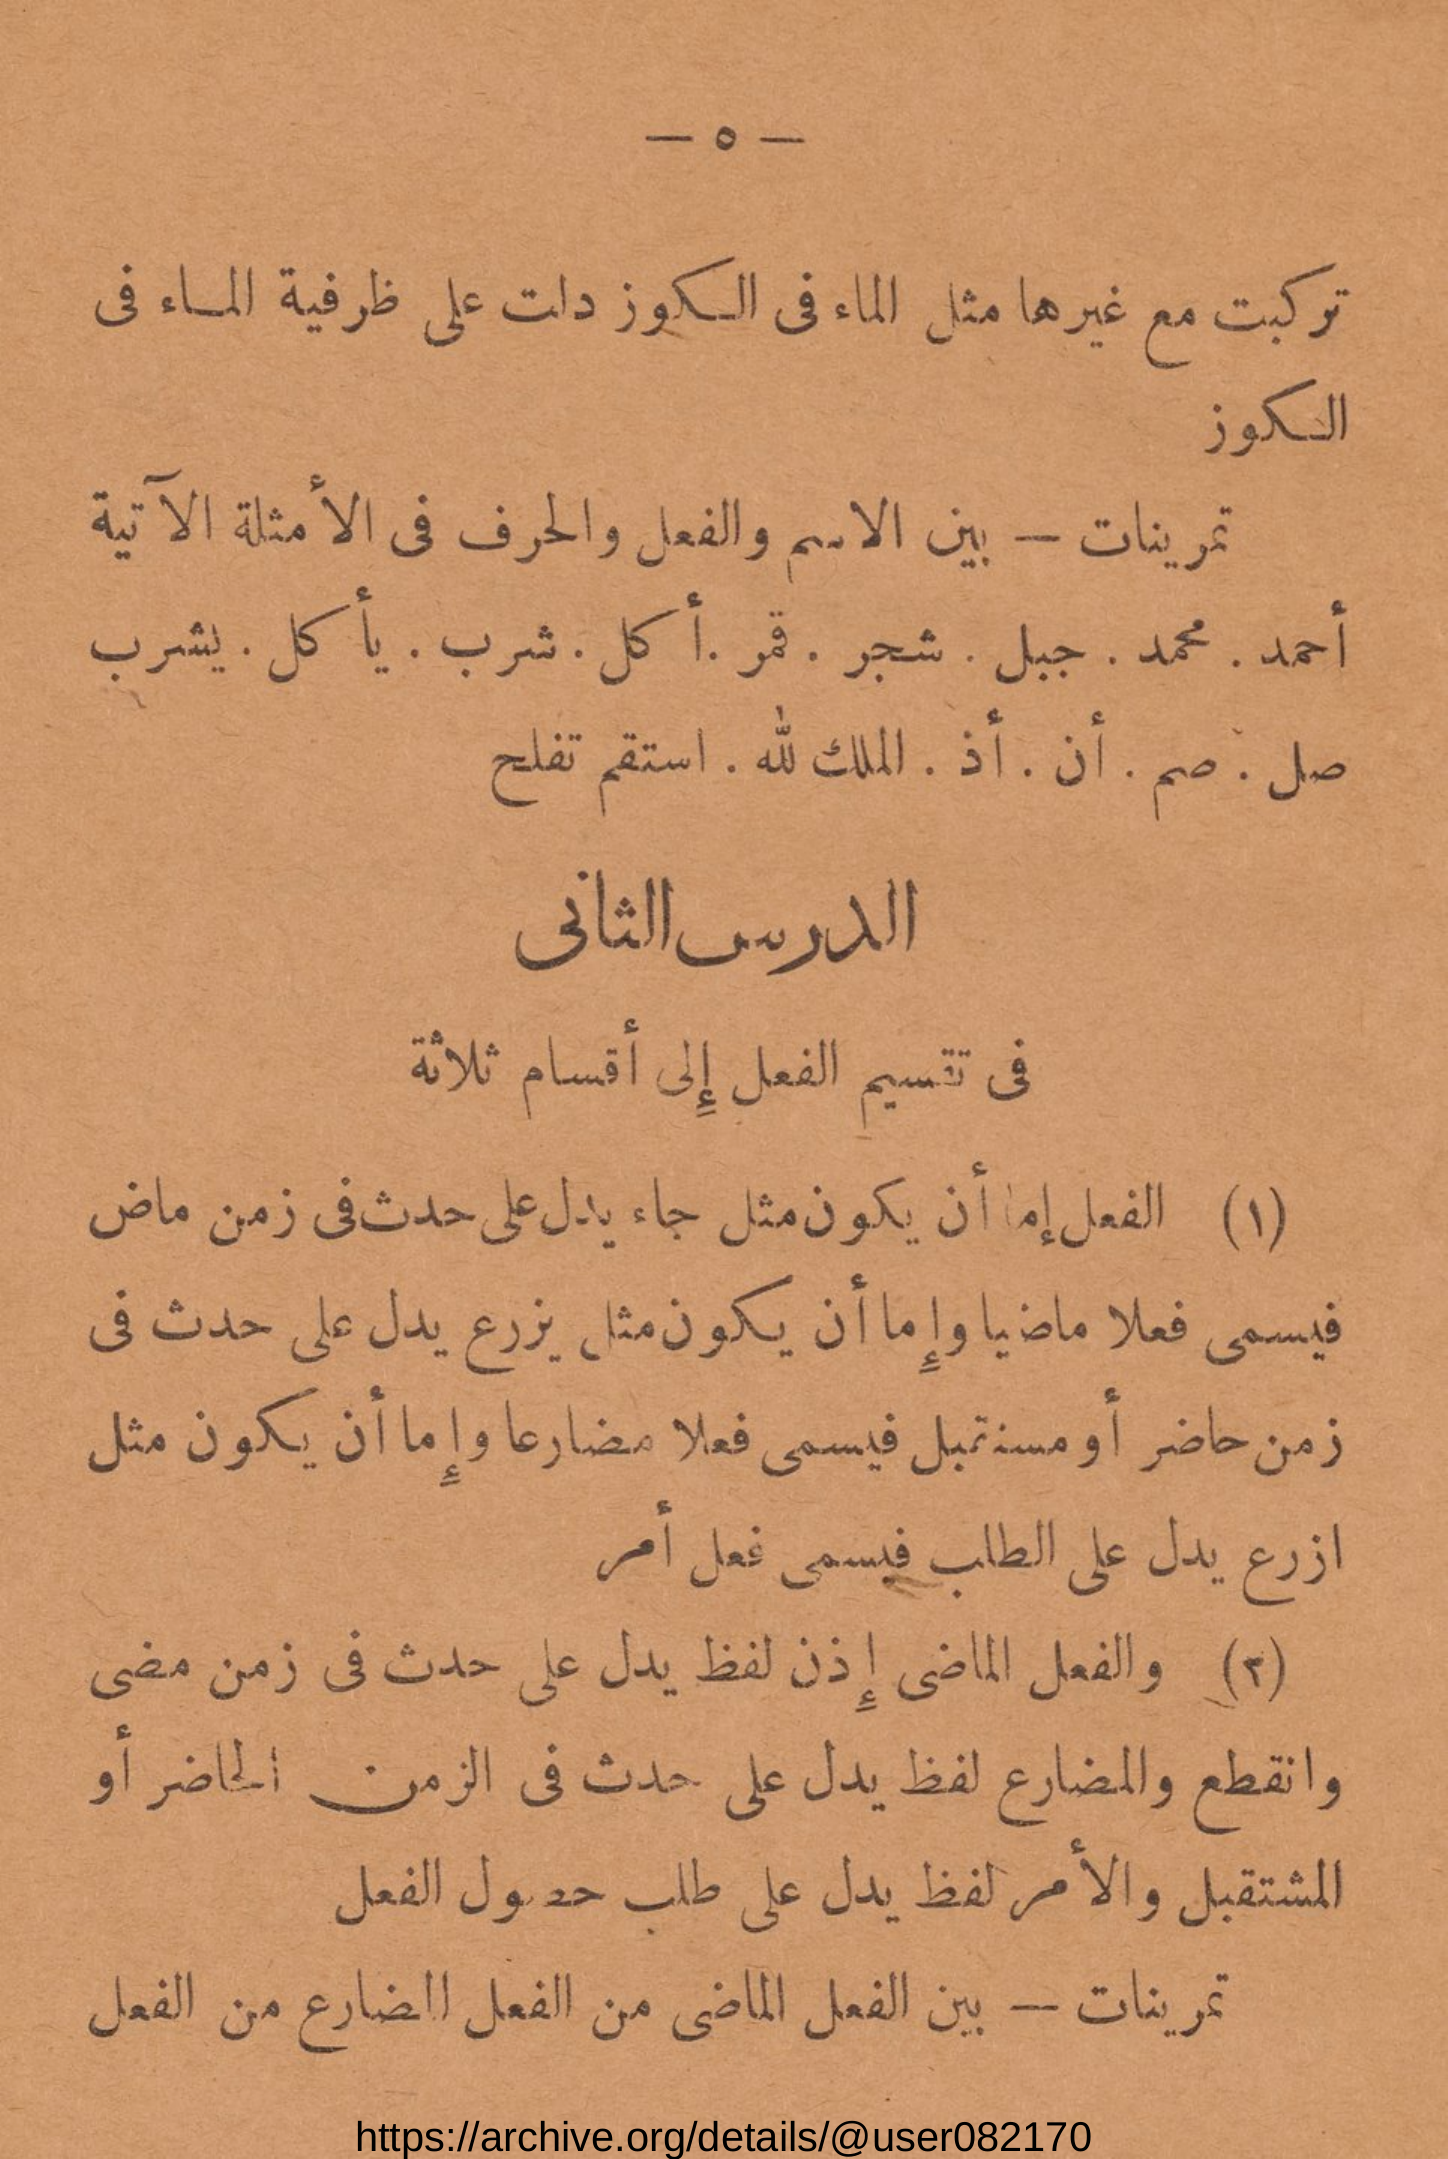 — ٥ —
تركبت مع غيرها مثل الماء فى الكوز دلت على ظرفية الماء فى
الكوز
تمرينات — بين الاسم والفعل والحرف فى الأمثلة الآتية
أحمد . محمد . جبل . شجر . قمر . أكل . شرب . يأكل . يشرب
صل . صم . أن . أذ . الملك لله . استقم تفلح
الدرس الثانى
فى تقسيم الفعل إلى أقسام ثلاثة
(١) الفعل إما أن يكون مثل جاء يدل على حدث فى زمن ماض
فيسمى فعلا ماضيا وإما أن يكون مثل يزرع يدل على حدث فى
زمن حاضر أو مستقبل فيسمى فعلا مضارعا وإما أن يكون مثل
ازرع يدل على الطلب فيسمى فعل أمر
(٢) والفعل الماضى إذن لفظ يدل على حدث فى زمن مضى
وانقطع والمضارع لفظ يدل على حدث فى الزمن الحاضر أو
المشتقبل والأمر لفظ يدل على طلب حصول الفعل
تمرينات — بين الفعل الماضى من الفعل المضارع من الفعل
https://archive.org/details/@user082170